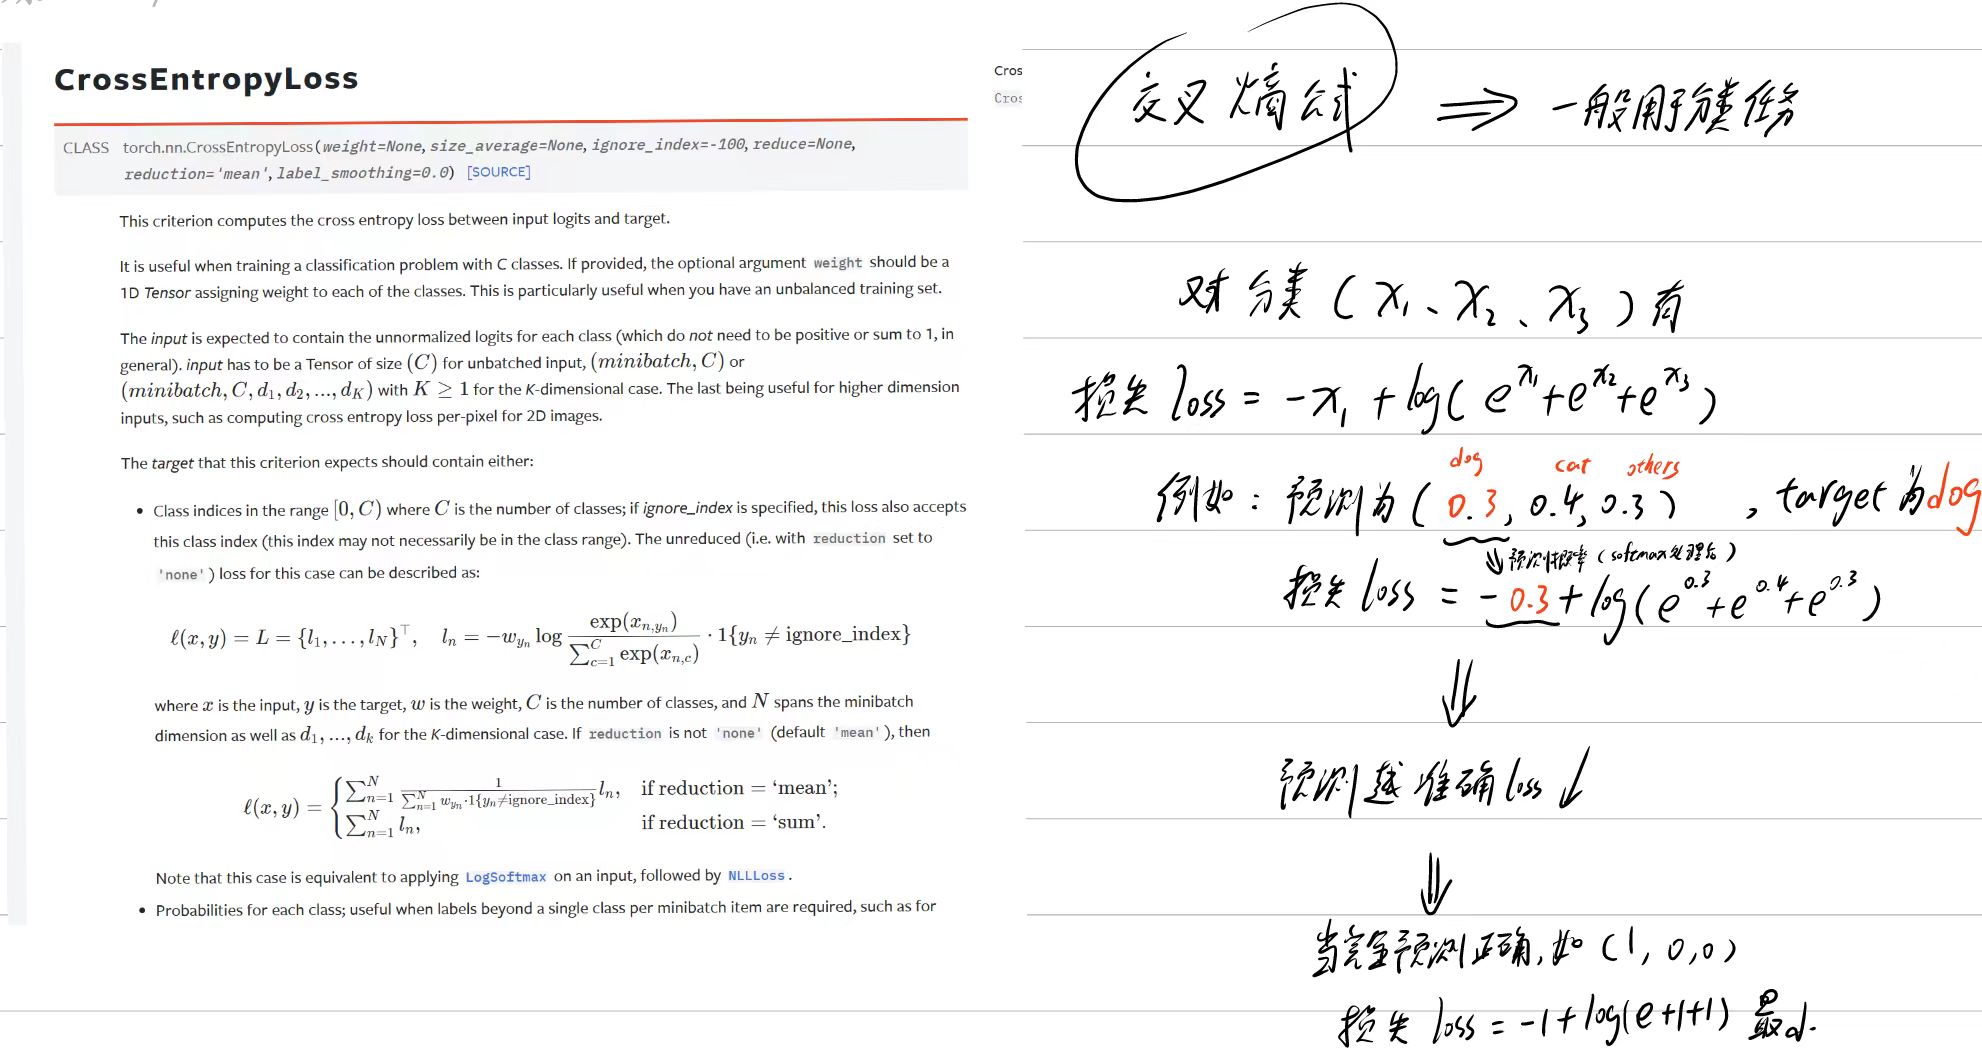 CrossEntropyLoss
CLASS torch.nn.CrossEntropyLoss(weight=None, size_average=None, ignore_index=-100, reduce=None,
reduction='mean', label_smoothing=0.0) [SOURCE]
This criterion computes the cross entropy loss between input logits and target.
It is useful when training a classification problem with C classes. If provided, the optional argument weight should be a
1D Tensor assigning weight to each of the classes. This is particularly useful when you have an unbalanced training set.
The input is expected to contain the unnormalized logits for each class (which do not need to be positive or sum to 1, in
general). input has to be a Tensor of size (C) for unbatched input, (minibatch, C) or
(minibatch, C, d₁, d₂, ..., d_K) with K ≥ 1 for the K-dimensional case. The last being useful for higher dimension
inputs, such as computing cross entropy loss per-pixel for 2D images.
The target that this criterion expects should contain either:
• Class indices in the range [0, C) where C is the number of classes; if ignore_index is specified, this loss also accepts
this class index (this index may not necessarily be in the class range). The unreduced (i.e. with reduction set to
'none') loss for this case can be described as:
ℓ(x, y) = L = {l₁, ..., l_N}^⊤, l_n = −w_{y_n} log exp(x_{n,y_n}) / ∑_{c=1}^C exp(x_{n,c}) · 1{y_n ≠ ignore_index}
where x is the input, y is the target, w is the weight, C is the number of classes, and N spans the minibatch
dimension as well as d₁, ..., d_k for the K-dimensional case. If reduction is not 'none' (default 'mean'), then
ℓ(x, y) = { ∑_{n=1}^N 1 / ∑_{n=1}^N w_{y_n}·1{y_n≠ignore_index} l_n, if reduction = ‘mean’;
∑_{n=1}^N l_n, if reduction = ‘sum’.
Note that this case is equivalent to applying LogSoftmax on an input, followed by NLLLoss.
• Probabilities for each class; useful when labels beyond a single class per minibatch item are required, such as for
Cros
Cros
交叉熵公式 ⇒ 一般用于分类任务
对分类（x₁、x₂、x₃）有
损失 loss = -x₁ + log( e^x₁ + e^x₂ + e^x₃ )
dog cat others
例如：预测为 ( 0.3, 0.4, 0.3 ) , target为dog
⇓ 预测概率 (softmax处理后)
损失 loss = -0.3 + log( e^0.3 + e^0.4 + e^0.3 )
⇓
预测越准确 loss ↓
⇓
当完全预测正确, 如 (1, 0, 0)
损失 loss = -1 + log(e+1+1) 最小.